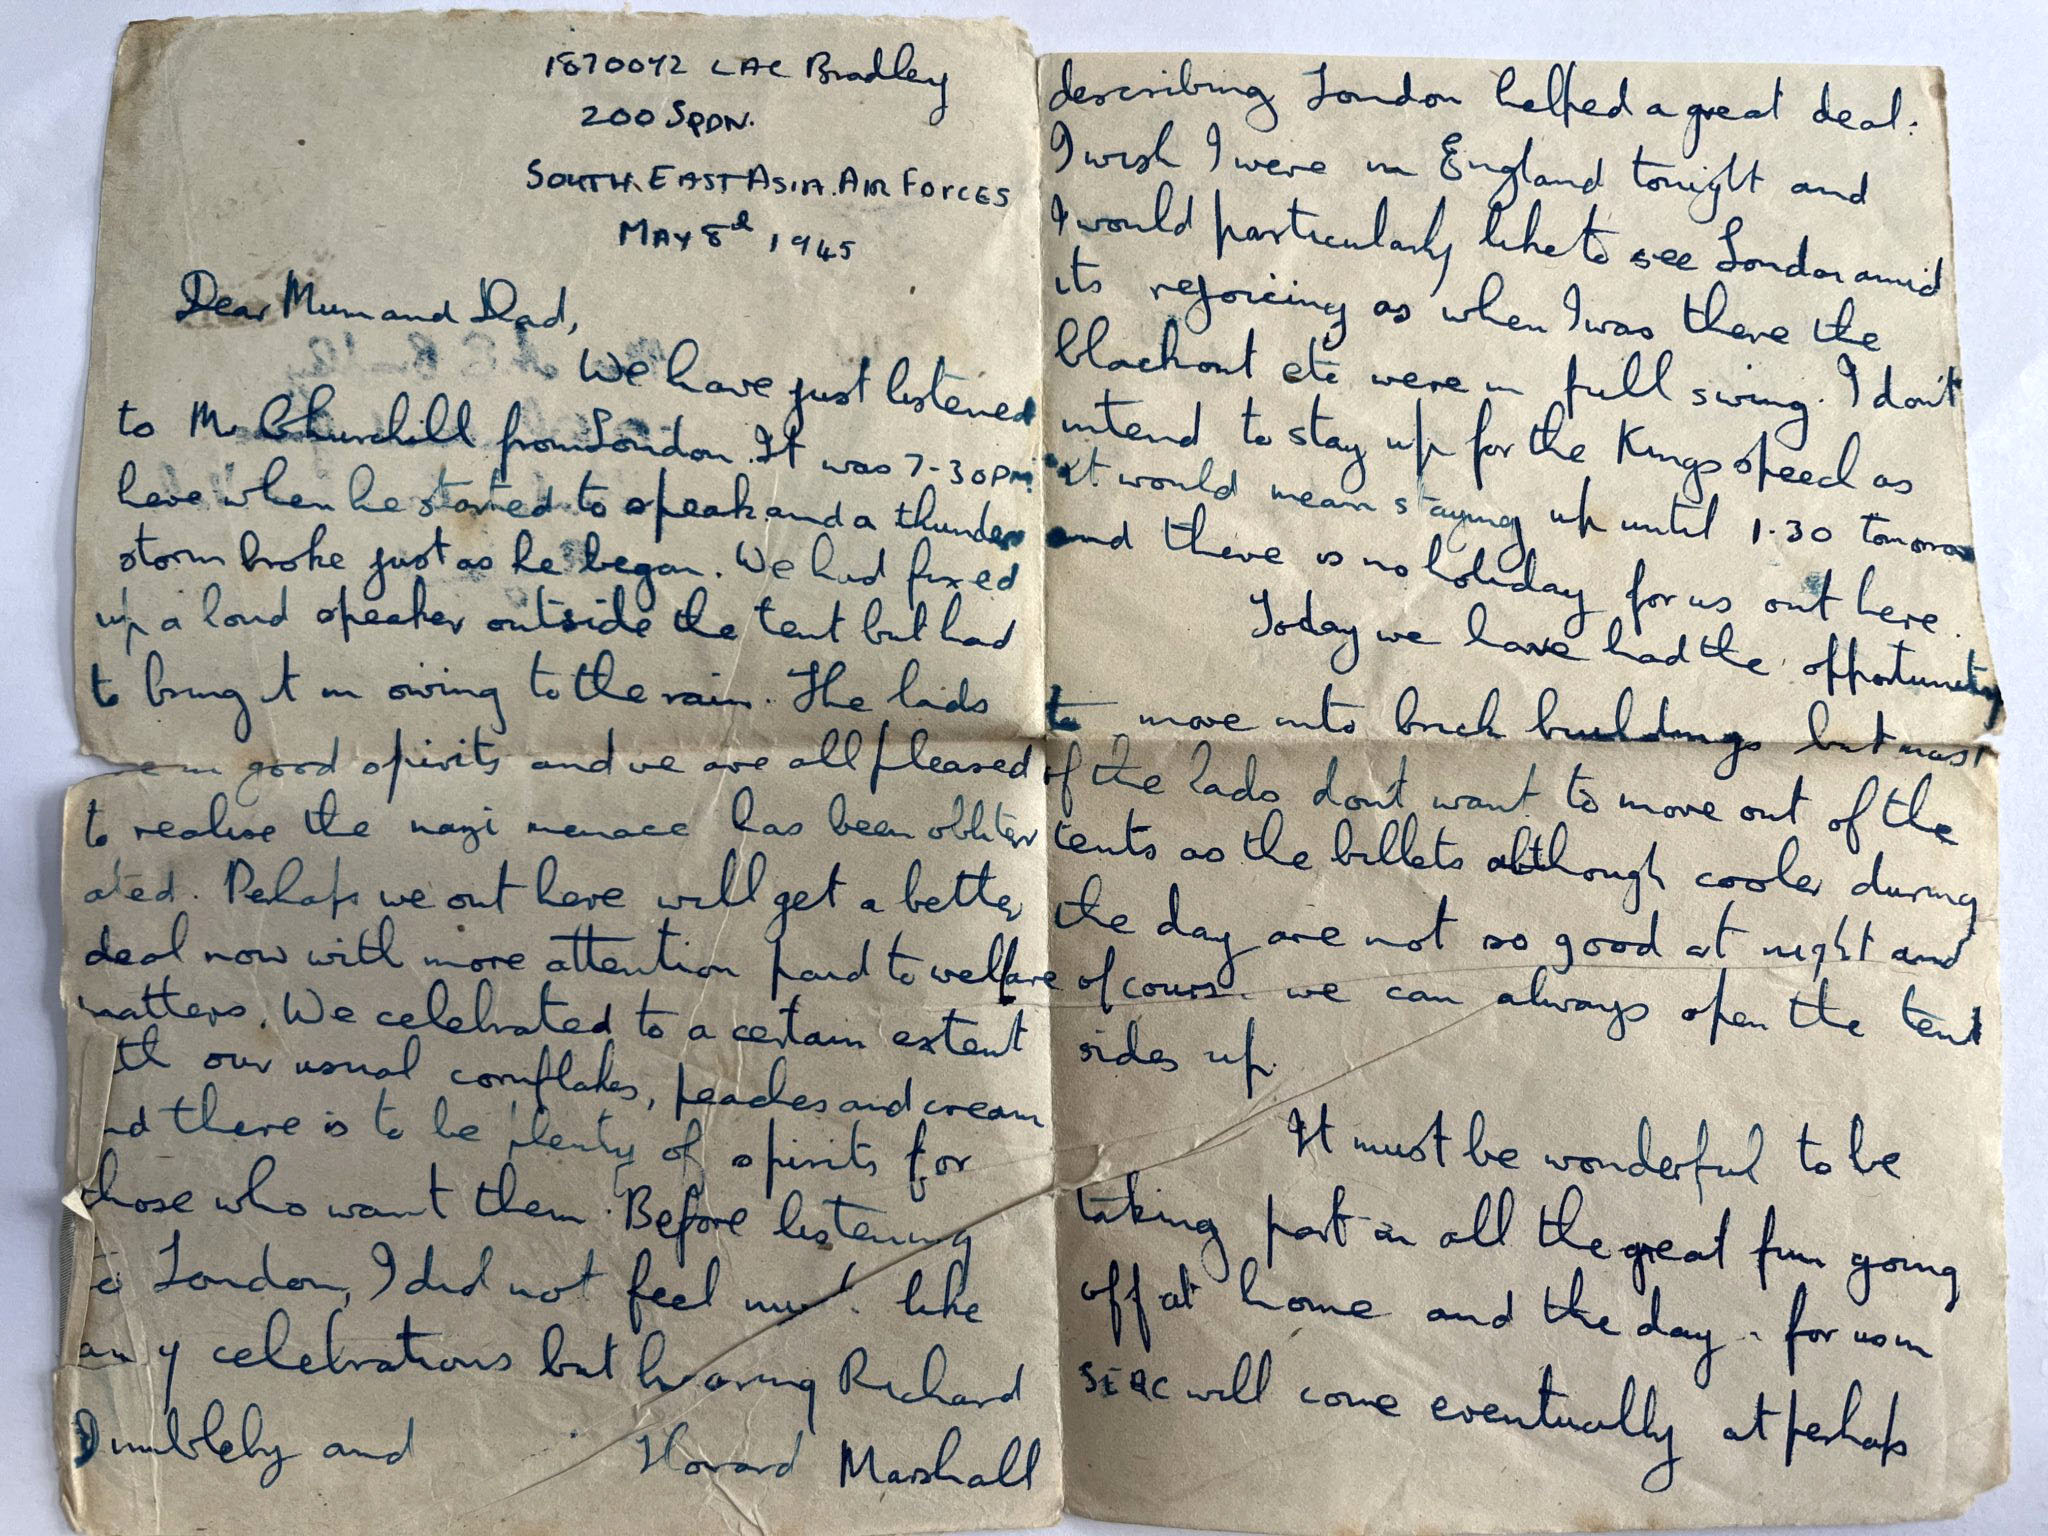 1870072 LAC Bradley
200 SQDN.
SOUTH. EAST ASIA. AIR FORCES
MAY 8th 1945
Dear Mum and Dad,
We have just listened
to Mr Churchill from London. It was 7-30 PM
here when he started to speak and a thunder
storm broke just as he began. We had fixed
up a loud speaker outside the tent but had
to bring it in owing to the rain. The lads
are in good spirits and we are all pleased
to realise the nazi menace has been obliter
ated. Perhaps we out here will get a better
deal now with more attention paid to welfare
matters. We celebrated to a certain extent
with our usual cornflakes, peaches and cream
and there is to be plenty of spirits for
those who want them. Before listening
to London, I did not feel much like
any celebrations but hearing Richard
Dimbleby and Howard Marshall
describing London helped a great deal.
I wish I were in England tonight and
I would particularly like to see London amid
its rejoicing as when I was there the
blackout etc were in full swing. I don't
intend to stay up for the Kings speech as
it would mean staying up until 1.30 tomorrow
and there is no holiday for us out here.
Today we have had the opportunity
to move into brick buildings but most
of the lads don't want to move out of the
tents as the billets although cooler during
the day are not so good at night and
of course we can always open the tent
sides up.
It must be wonderful to be
taking part in all the great fun going
off at home and the day for us in
SEAC will come eventually at perhaps